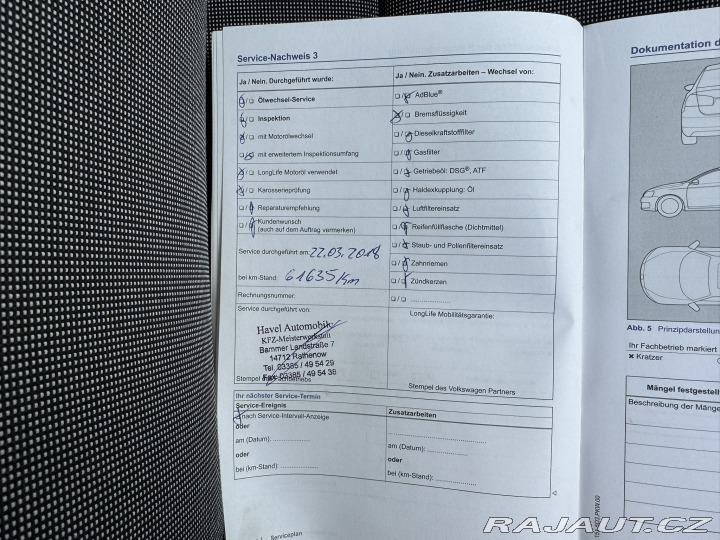 Service-Nachweis 3
Ja / Nein. Durchgeführt wurde:
❏/❏ Ölwechsel-Service
❏/❏ Inspektion
❏/❏ mit Motorölwechsel
❏/❏ mit erweitertem Inspektionsumfang
❏/❏ LongLife Motoröl verwendet
❏/❏ Karosserieprüfung
❏/❏ Reparaturempfehlung
❏/❏ Kundenwunsch
(auch auf dem Auftrag vermerken)
Service durchgeführt am: 22.03.2018
bei km-Stand: 61635 Km
Rechnungsnummer:
Service durchgeführt von:
Havel Automobil
KFZ-Meisterwerkstatt
Bammer Landstraße 7
14712 Rathenow
Tel. 03385 / 49 54 29
Fax 03385 / 49 54 38
Stempel des Fachbetriebs
Ja / Nein. Zusatzarbeiten – Wechsel von:
❏/❏ AdBlue®
❏/❏ Bremsflüssigkeit
❏/❏ Dieselkraftstofffilter
❏/❏ Gasfilter
❏/❏ Getriebeöl: DSG®, ATF
❏/❏ Haldexkupplung: Öl
❏/❏ Luftfiltereinsatz
❏/❏ Reifenfüllflasche (Dichtmittel)
❏/❏ Staub- und Pollenfiltereinsatz
❏/❏ Zahnriemen
❏/❏ Zündkerzen
❏/❏ ....................
LongLife Mobilitätsgarantie:
Stempel des Volkswagen Partners
Ihr nächster Service-Termin
Service-Ereignis
❏ nach Service-Intervall-Anzeige
oder
am (Datum): ....................
oder
bei (km-Stand): ....................
Zusatzarbeiten
....................
am (Datum): ....................
oder
bei (km-Stand): ....................
Serviceplan
Dokumentation d
Abb. 5 Prinzipdarstellun
Ihr Fachbetrieb markiert
× Kratzer
Mängel festgestell
Beschreibung der Mänge
RAJAUT.CZ